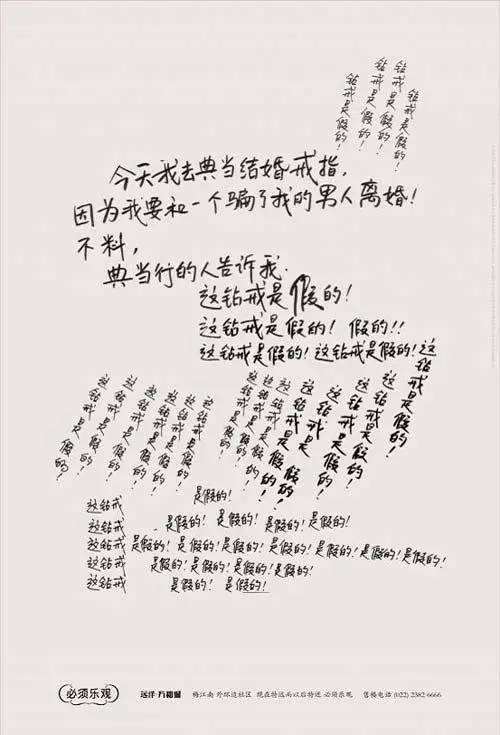 钻戒是假的！
钻戒是假的！
钻戒是假的！
钻戒是假的！
今天我去典当结婚戒指，
因为我要和一个骗了我的男人离婚！
不料，
典当行的人告诉我.
这钻戒是假的！
这钻戒是假的！ 假的！！
这钻戒是假的！这钻戒是假的！这钻戒是假的！
这钻戒是假的！
这钻戒是假的！
这钻戒是假的！
这钻戒是假的！
这钻戒是假的！
这钻戒是假的！
这钻戒是假的！
这钻戒是假的！
这钻戒是假的！
这钻戒是假的！
这钻戒是假的！
这钻戒是假的！
这钻戒是假的！
是假的！
这钻戒
这钻戒 是假的！ 是假的！ 是假的！是假的！
这钻戒 是假的！是假的！是假的！是假的！是假的！是假的！是假的！
这钻戒 是假的！是假的！是假的！是假的！
这钻戒 是假的！ 是假的！
必须乐观 远洋·万和城 梅江南 外环边社区 现在特远而以后特近 必须乐观 售楼电话 (022) 2382 6666